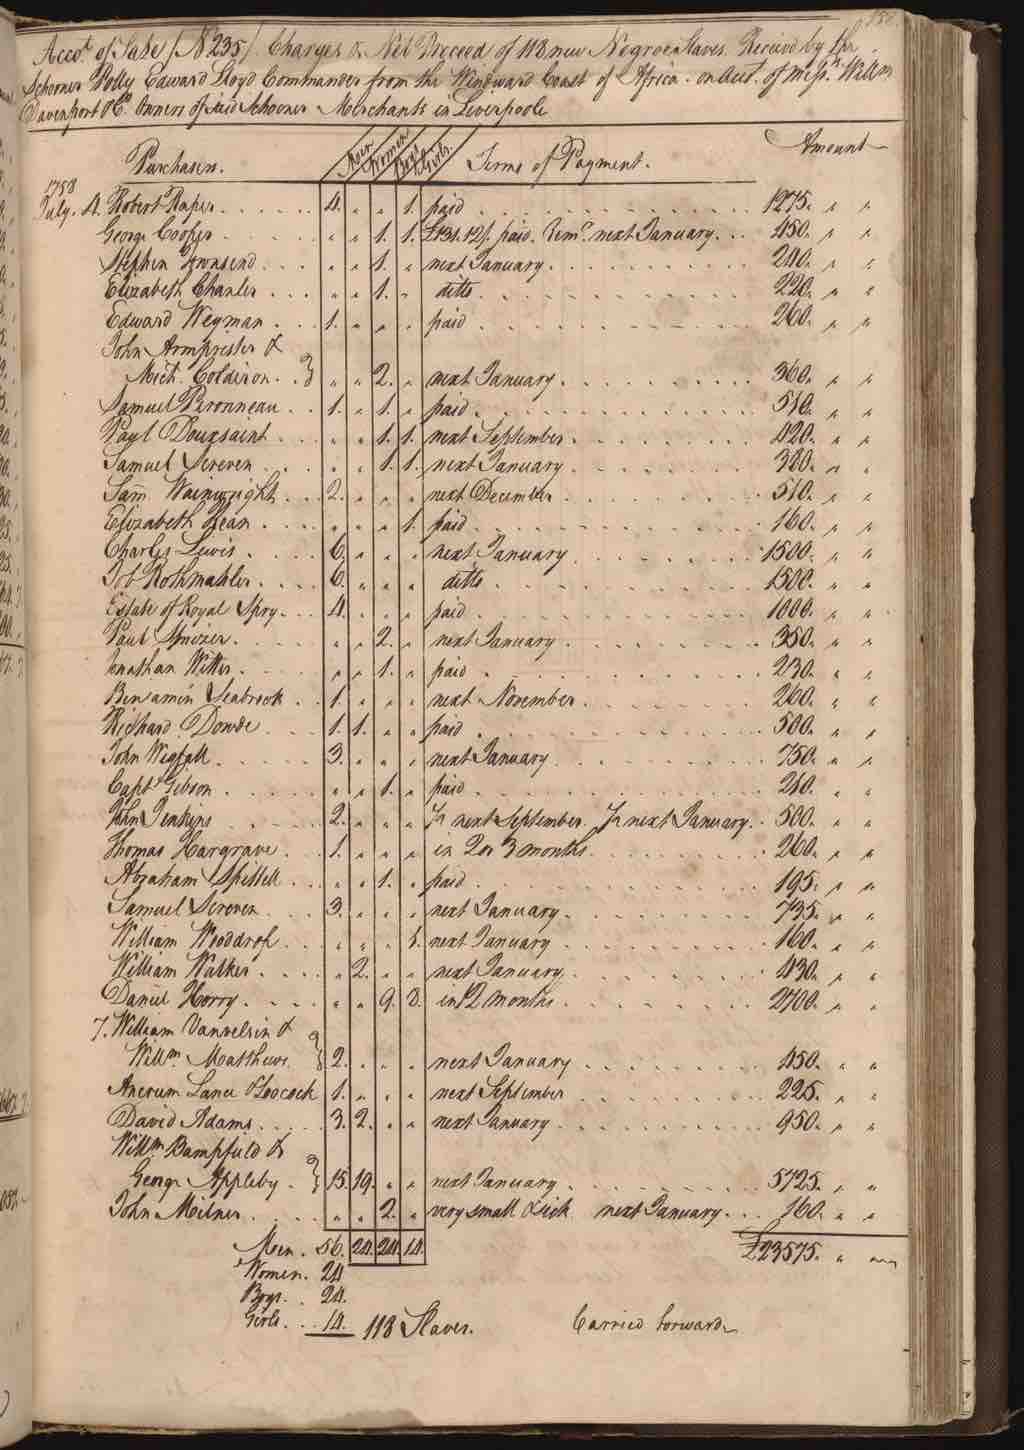 Acco.t of Sale (N 235) Charges & Net Proceed of 118 new Negroe Slaves Received by the
Schooner Polly Edward Lloyd Commander from the Windward Coast of Africa. on Acct. of Messrs. Willm
Davenport & Co. Owners of said Schooner Merchants in Liverpoole
Purchasers. Men Women Boys Girls. Terms of Payment. Amount
1758
July. 4. Robert Raper 4. „ „ 1. paid 1275. „ „
George Cooper „ „ 1. 1. £131.12/. paid. Remr. next January. 450. „ „
Stephen Townsend „ „ 1. „ next January 240. „ „
Elizabeth Chanler „ „ 1. „ ditto 220. „ „
Edward Weyman 1. „ „ „ paid 260. „ „
John Armprister &
Mich. Colderon } „ „ 2. „ next January 360. „ „
Samuel Peronneau 1. „ 1. „ paid 510. „ „
Paul Douxsaint „ „ 1. 1. next September 420. „ „
Samuel Screven „ „ 1. 1. next January 320. „ „
Sam Wainwright 2. „ „ „ next December 510. „ „
Elizabeth Dean „ „ „ 1. paid 160. „ „
Charles Lewis 6. „ „ „ next January 1500. „ „
Job Rothmahler 6. „ „ „ ditto 1500. „ „
Estate of Royal Spry 4. „ „ „ paid 1000. „ „
Paul „ „ 2. „ next January 350. „ „
Jonathan Witter „ „ 1. „ paid 230. „ „
Benjamin Seabrook 1. „ „ „ next November 260. „ „
Richard Dowde 1. 1. „ „ paid 500. „ „
John Wigfall 3. „ „ „ next January 750. „ „
Capt. Gibson „ „ 1. „ paid 210. „ „
John Jenkins 2. „ „ „ ½ next September. ½ next January. 500. „ „
Thomas Hargrave 1. „ „ „ in 2 or 3 months 260. „ „
Abraham Spidell „ „ 1. „ paid 195. „ „
Samuel Screven 3. „ „ „ next January 735. „ „
William Wooddrop „ „ „ 1. next January 160. „ „
William Walker „ 2. „ „ next January 430. „ „
Daniel Horry „ „ 9. 8. in 12 months 2700. „ „
7. William Vanvelsin &
Willm. Matthews } 2. „ „ „ next January 450. „ „
Ancrum Lance & Loocock 1. „ „ „ next September 225. „ „
David Adams 3. 2. „ „ next January 950. „ „
Willm. Bampfield &
George Appleby } 15. 19. „ „ next January 5725. „ „
John Milner „ „ 2. „ very small & sick next January 160. „ „
Men. 56. 24. 24. 14. £23575. „ „
Women. 24
Boys. 24.
Girls. 14. 118 Slaves. Carried forward